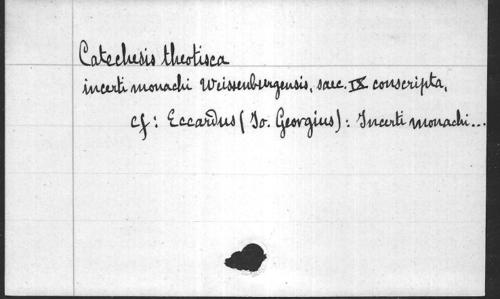 Catechesis theotisca
incerti monachi Weissenburgensis, saec. IX conscripta,
cf: Eccardus (Jo. Georgius): Incerti monachi...